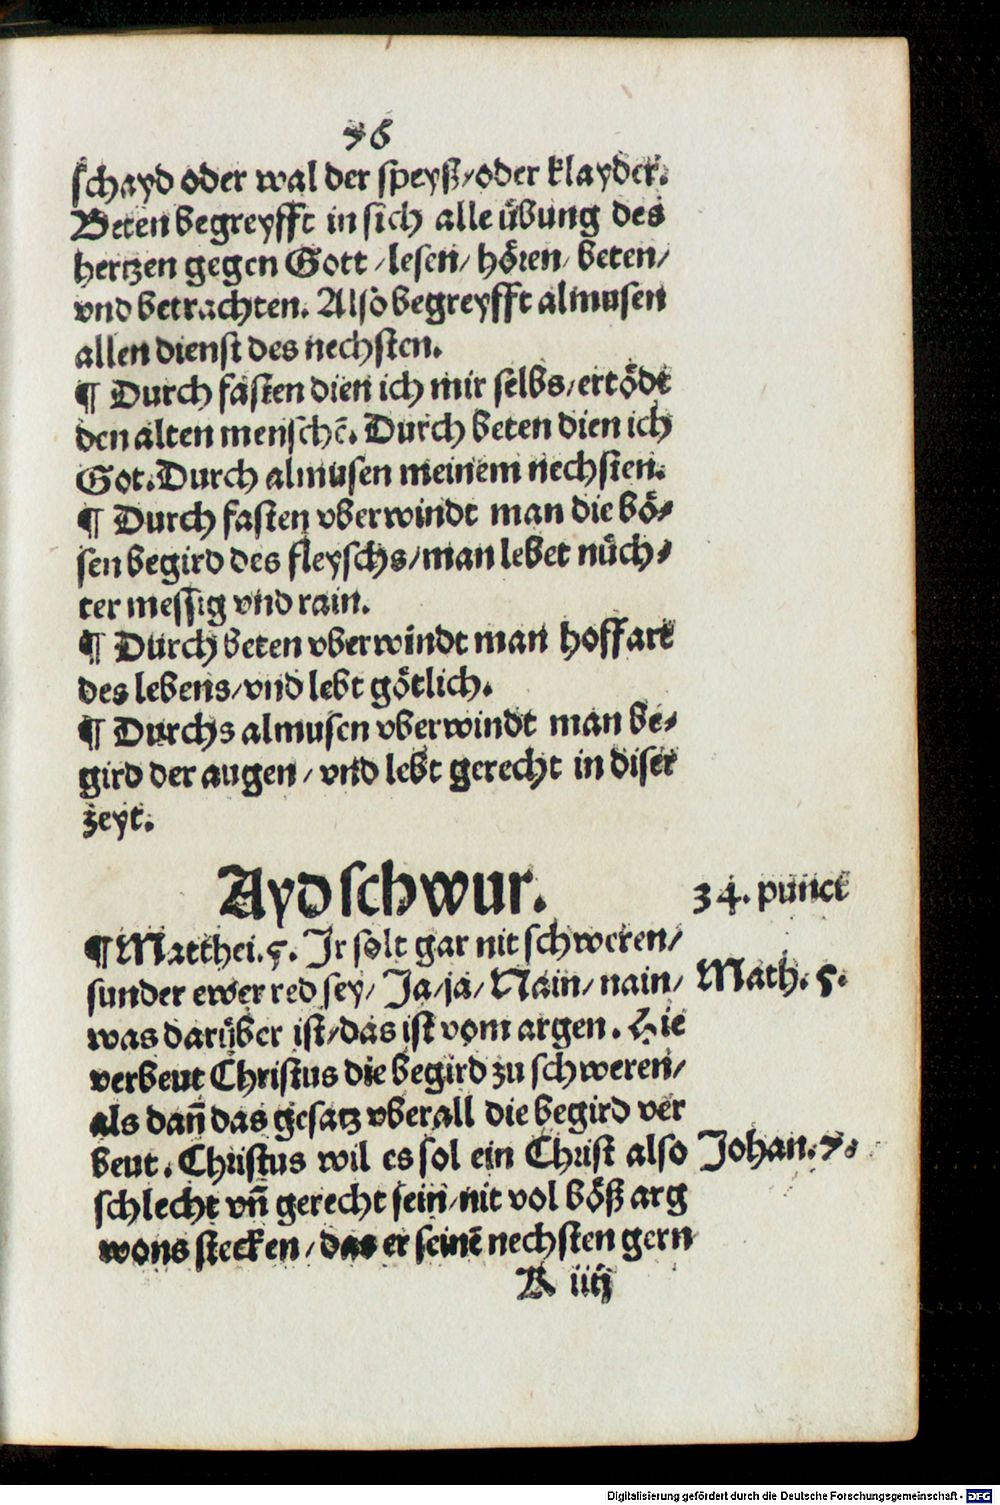 76
schayd oder wal der speyß/oder klayder.
Beten begreyfft in sich alle übung des
hertzen gegen Gott/lesen/hören/beten/
vnd betrachten. Also begreyfft almusen
allen dienst des nechsten.
¶ Durch fasten dien ich mir selbs/ertödt
den alten menschē. Durch beten dien ich
Got. Durch almusen meinem nechsten.
¶ Durch fasten vberwindt man die bö⸗
sen begird des fleyschs/man lebet nüch⸗
ter messig vnd rain.
¶ Durch beten vberwindt man hoffart
des lebens/vnd lebt götlich.
¶ Durchs almusen vberwindt man be⸗
gird der augen/vnd lebt gerecht in diser
zeyt.
Aydschwur.
34. punct
¶ Matthei.5. Jr solt gar nit schweren/
sunder ewer red sey/Ja/ja/Nain/nain/
Math. 5.
was darüber ist/das ist vom argen. Hie
verbeut Christus die begird zu schweren/
als dañ das gesatz vberall die begird ver
beut. Christus wil es sol ein Christ also
Johan. 7.
schlecht vñ gerecht sein/nit vol böß arg
wons stecken/das er seinē nechsten gern
K iiij
Digitalisierung gefördert durch die Deutsche Forschungsgemeinschaft - DFG